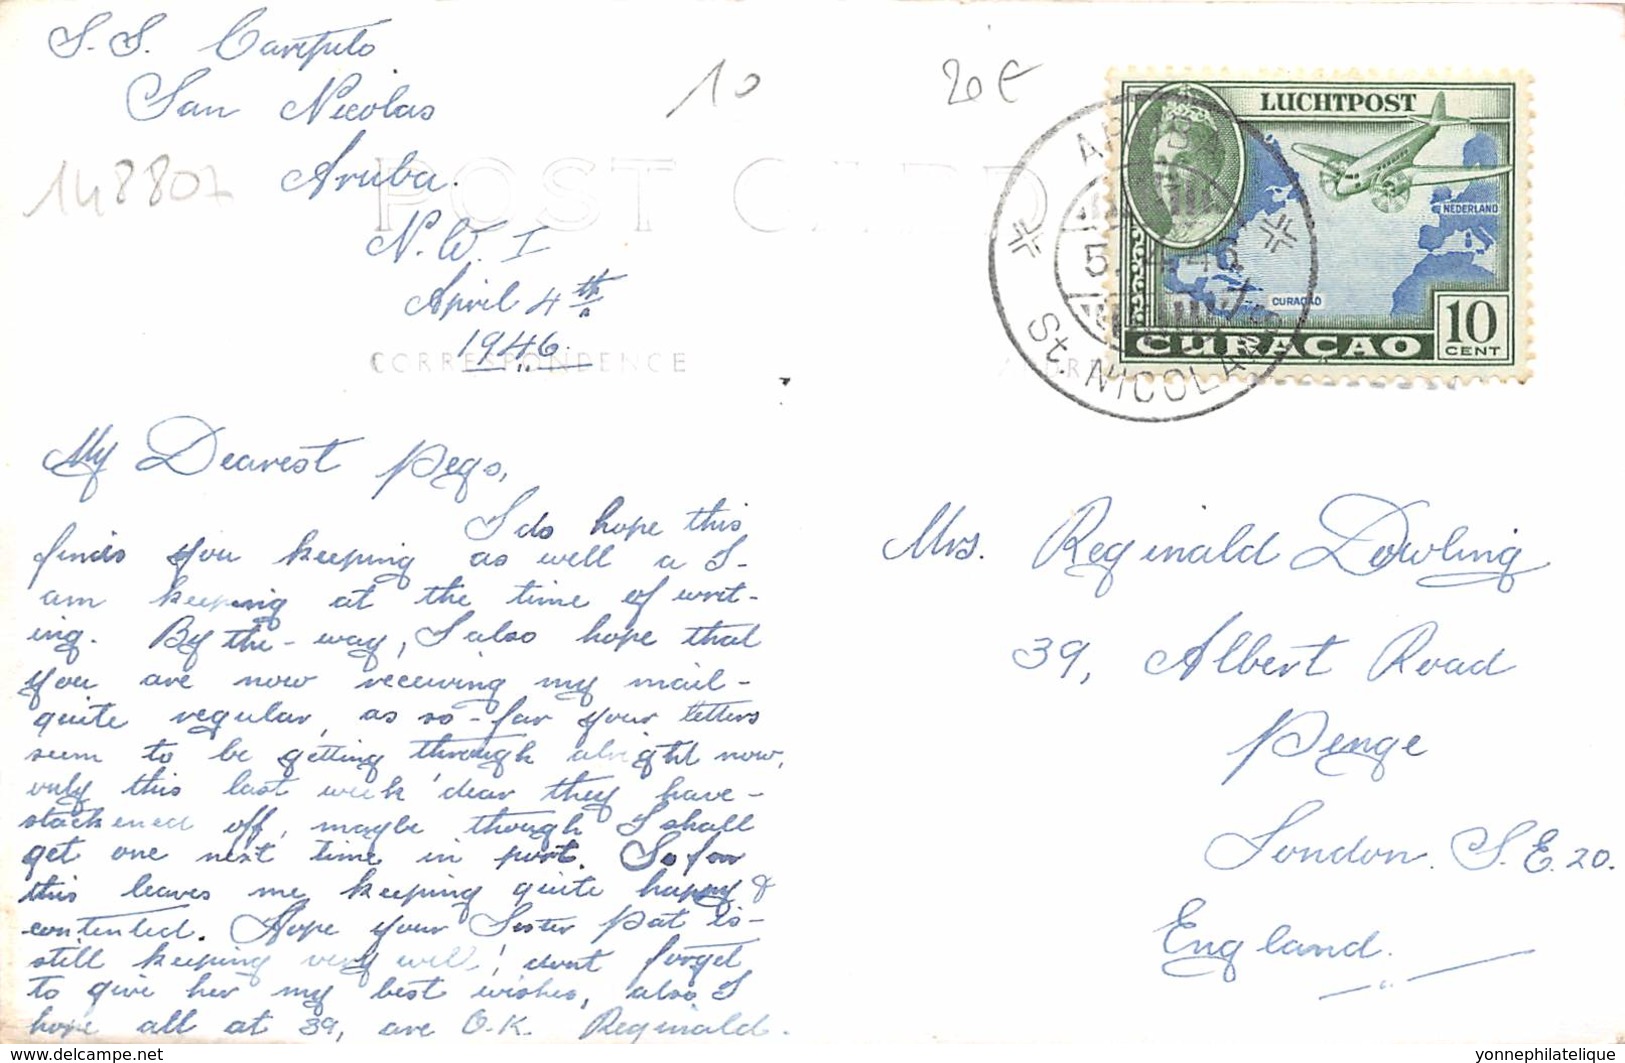 S. S. Caripito
San Nicolas
Aruba.
N. W. I
April 4th
1946.
148807
10
20€
POST CARD
CORRESPONDENCE
LUCHTPOST
NEDERLAND
CURAÇAO
10
CENT
CURAÇAO
ARUBA
5.4.46
St. NICOLAAS
My Dearest Pegs,
I do hope this
finds you keeping as well a I-
am keeping at the time of writ-
ing. By the-way, I also hope that
you are now receiving my mail-
quite regular, as so-far your letters
seem to be getting through alright now,
only this last week dear they have-
slackened off, maybe though I shall
get one next time in port. So for
this leaves me keeping quite happy &
contented. Hope your Sister Pat is-
still keeping very well, dont forget
to give her my best wishes, also I
hope all at 39, are O.K. Reginald.
Mrs. Reginald Dowling
39, Albert Road
Penge
London. S.E. 20.
England.
yonnephilatelique
delcampe.net